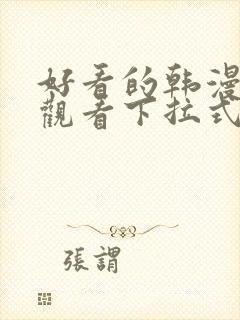 好看的韩漫
觀看下拉式
張謂